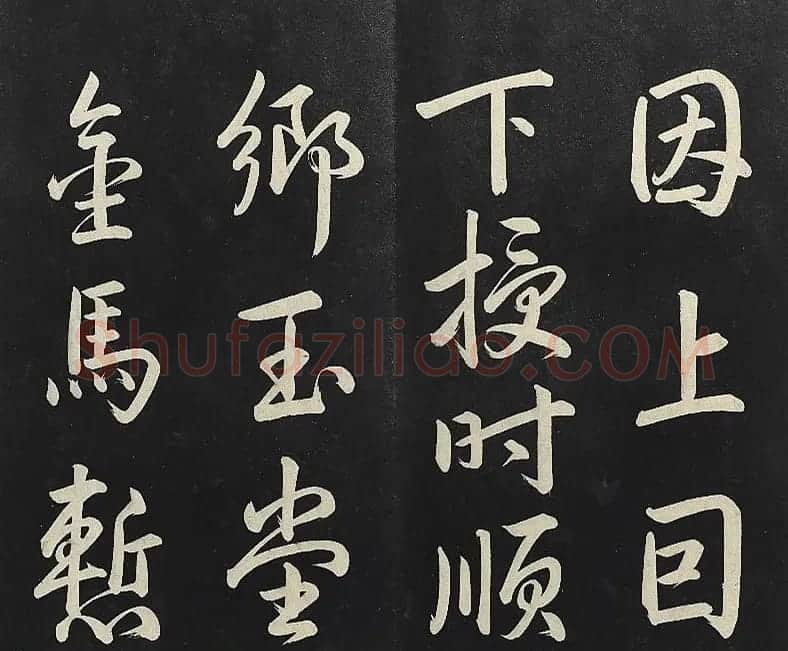 因上回
下授时順
鄉玉堂
金馬慙
Shufaziliao.COM